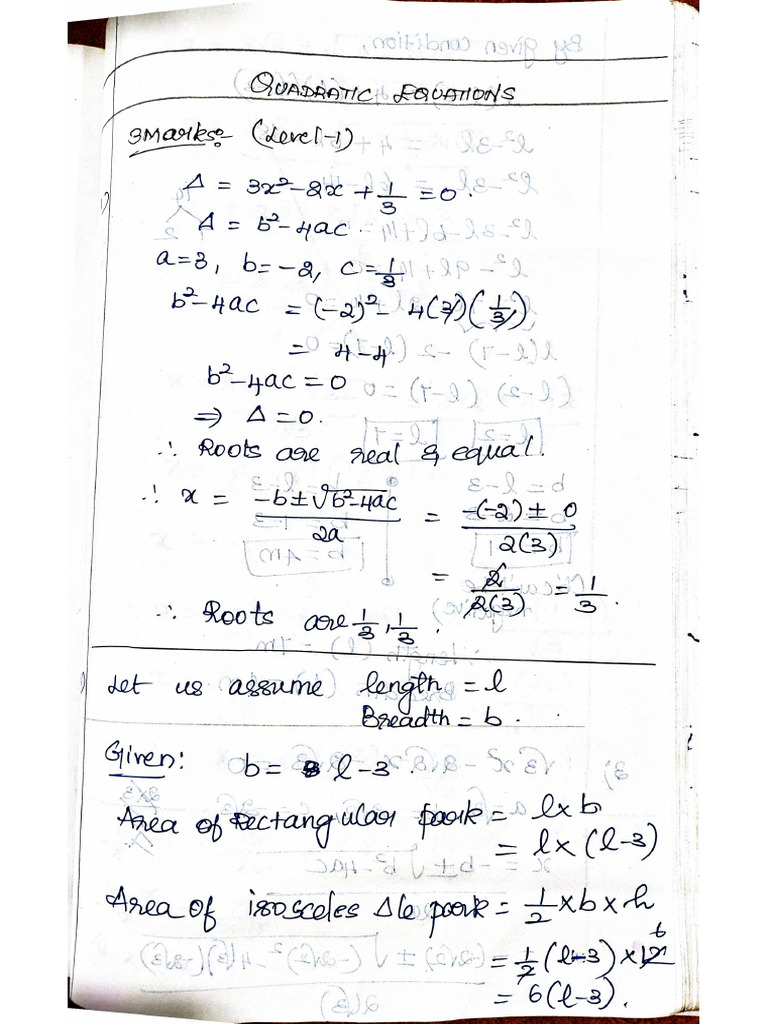 QUADRATIC EQUATIONS
3Marks:- (Level-1)
1) Δ = 3x² - 2x + 1/3 = 0.
Δ = b² - 4ac.
a=3, b=-2, c=1/3
b² - 4ac = (-2)² - 4(3)(1/3)
= 4 - 4
b² - 4ac = 0
⇒ Δ = 0.
∴ Roots are real & equal.
∴ x = (-b ± √(b²-4ac))/2a = (-(-2) ± 0)/2(3)
= 2/2(3) = 1/3.
∴ Roots are 1/3, 1/3.
Let us assume length = l
Breadth = b.
Given: b = l - 3.
Area of Rectangular park = l x b
= l x (l-3)
Area of isosceles Δle park = 1/2 x b x h
= 1/2 (l-3) x 12 6
= 6(l-3).